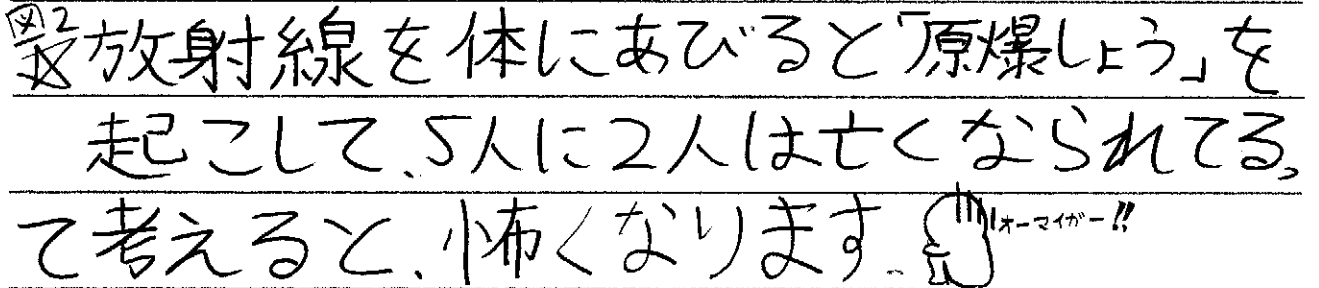 放射線を体にあびると「原爆しょう」を
起こして、5人に2人は亡くなられてる
って考えると、怖くなります、オーマイガー!!